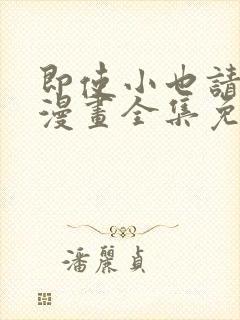 即使小也請
漫畫全集免
潘麗貞